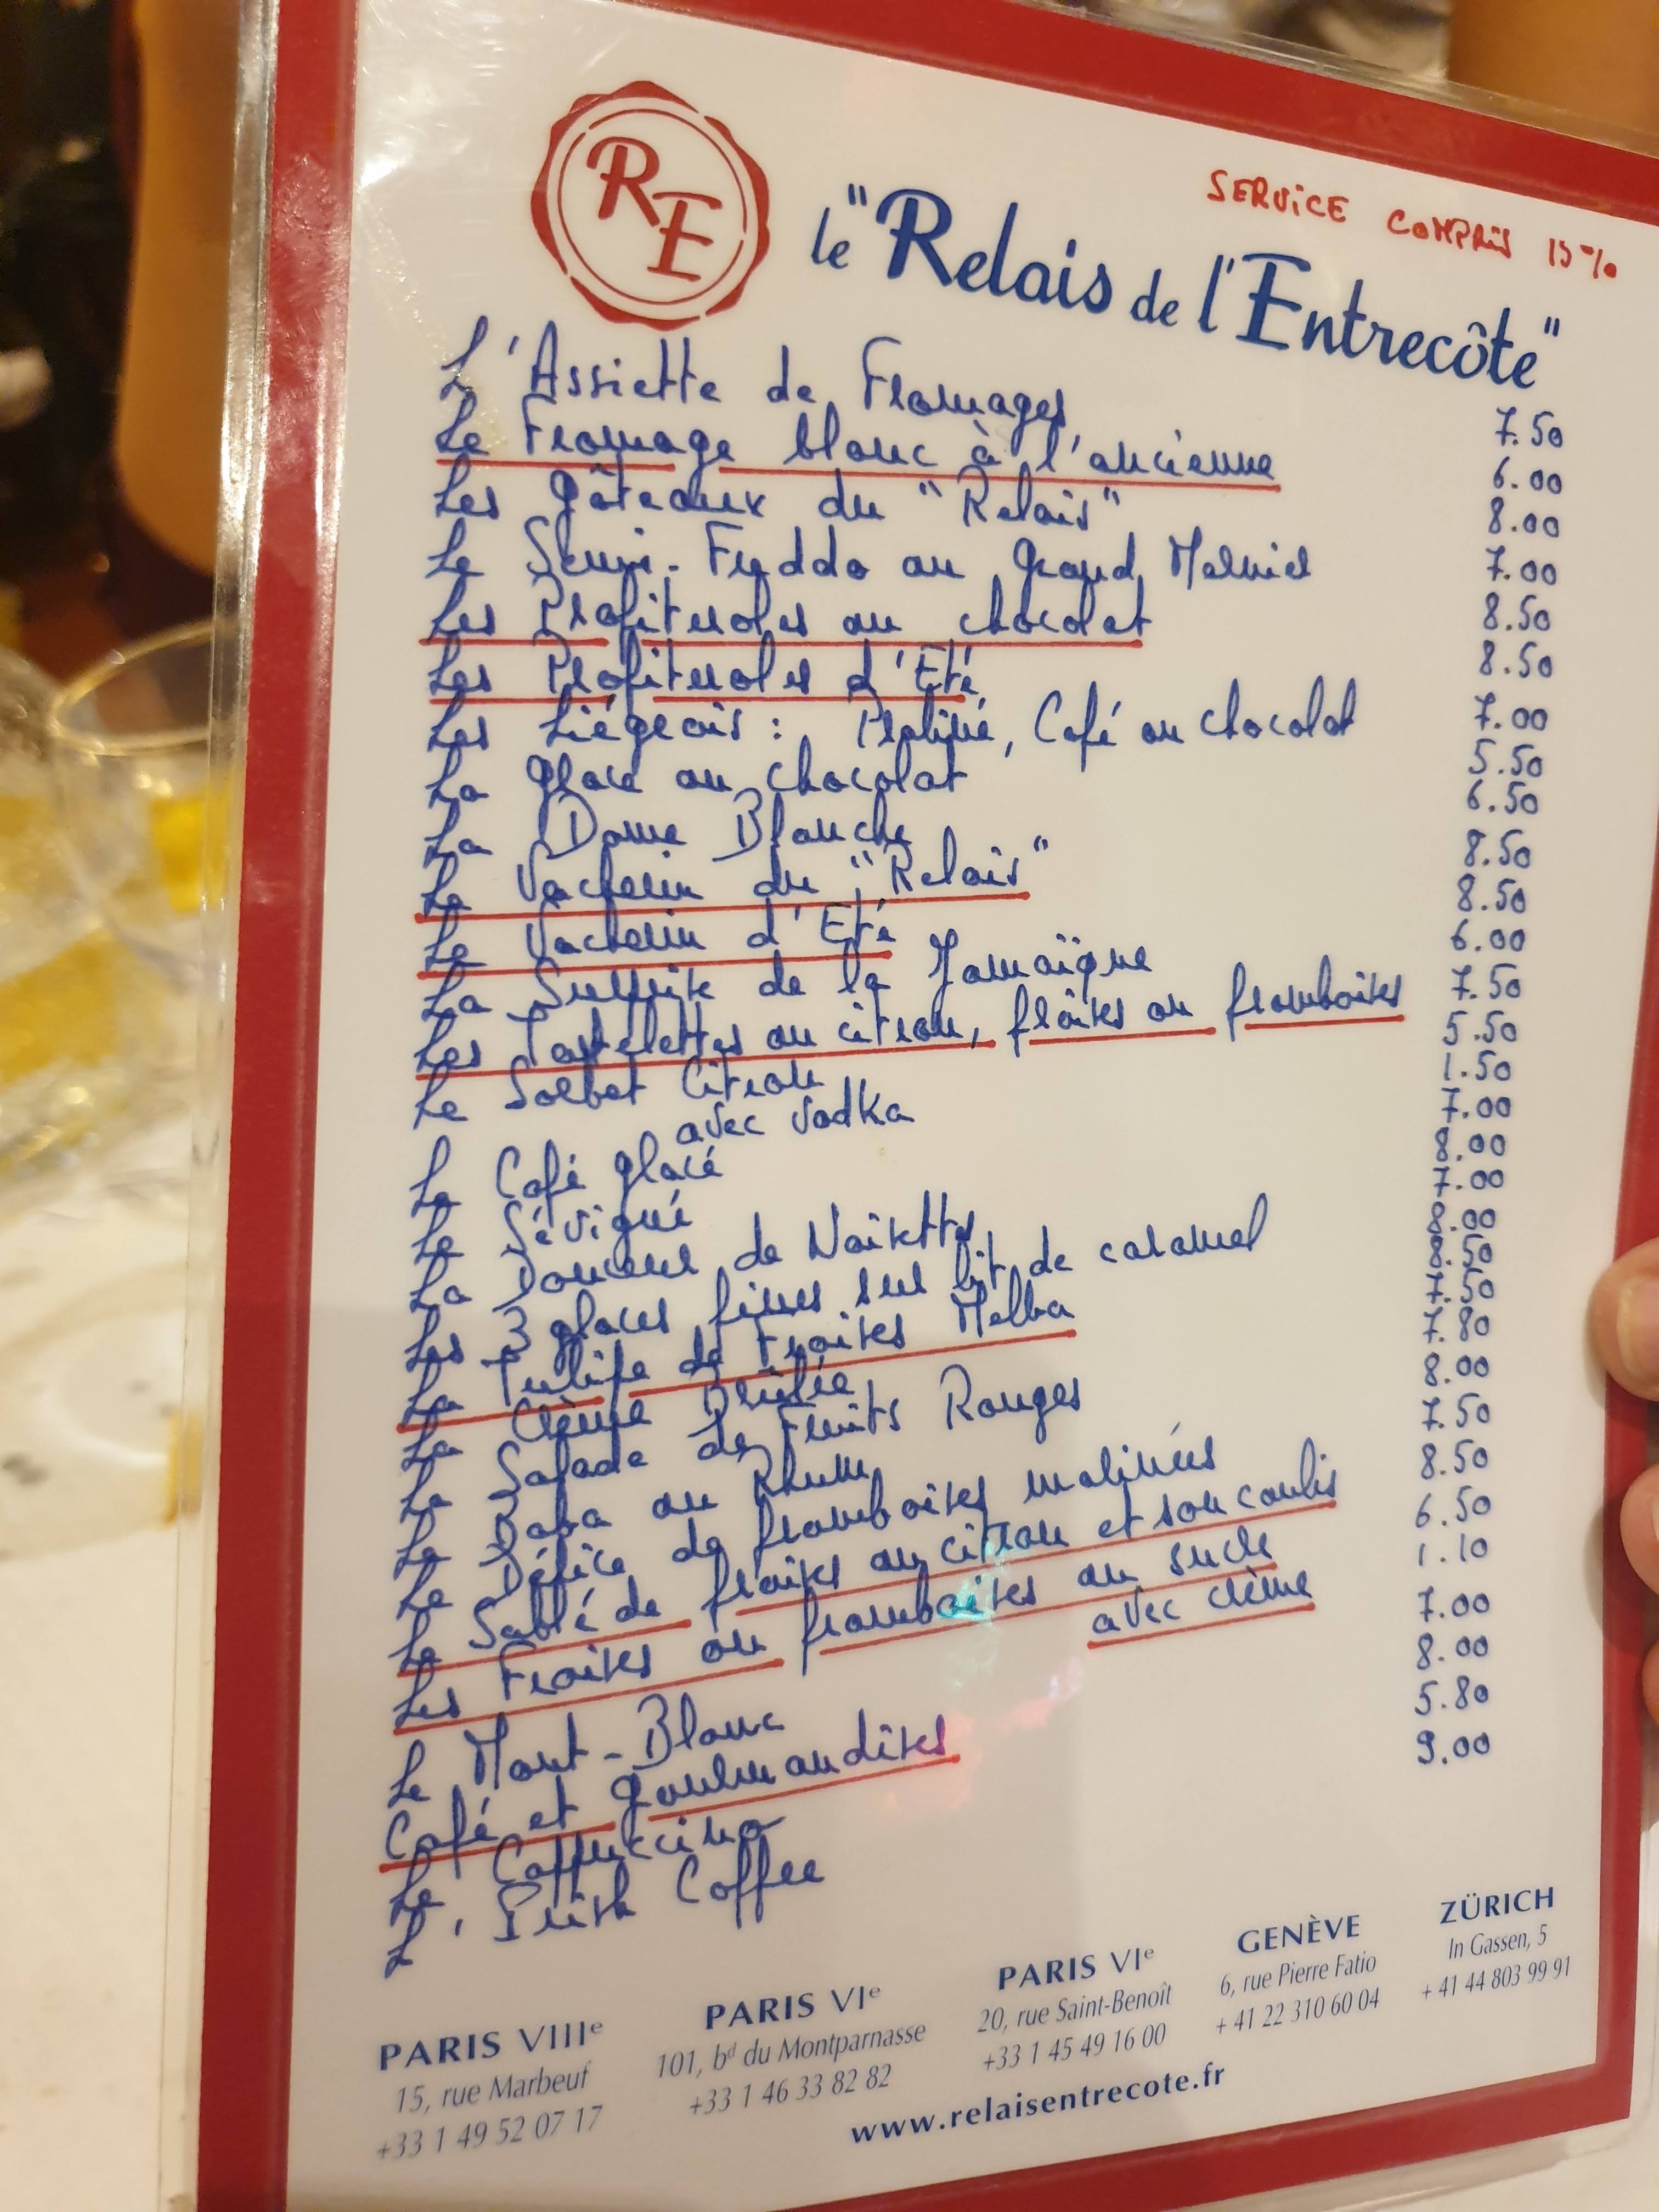 SERVICE COMPRIS 15%
RE
le "Relais de l'Entrecôte"
L'Assiette de Fromages 7.50
Le Fromage blanc à l'ancienne 6.00
Les gâteaux du "Relais" 8.00
Le Semi-Freddo au Grand Marnier 7.00
Les Profiteroles au chocolat 8.50
Les Profiteroles d'Eté 8.50
Les Liégeois : Praliné, Café ou Chocolat 7.00
La glace au chocolat 5.50
La Dame Blanche 6.50
Le Vacherin du "Relais" 8.50
Le Vacherin d'Eté 8.50
La Surprise de la Jamaïque 6.00
Les Tartelettes au citron, fraises ou framboises 7.50
Le Sorbet Citron 5.50
avec vodka 1.50
Le Café glacé 7.00
Le Sévigné 8.00
La Douceur de Noisettes 7.00
Les 3 glaces fines sur lit de caramel 8.00
La Tulipe de Fraises Melba 8.50
La Crème Brûlée 7.50
La Salade de Fruits Rouges 7.80
Le Baba au Rhum 8.00
Le Délice de framboises malinées 7.50
Le Sablé de fraises au citron et son coulis 8.50
Les Fraises ou framboises au sucre 6.50
avec crème 1.10
Le Mont-Blanc 7.00
Café et gourmandises 8.00
Le Cappuccino 5.80
L'Irish Coffee 9.00
PARIS VIIIe
15, rue Marbeuf
+33 1 49 52 07 17
PARIS VIe
101, bd du Montparnasse
+33 1 46 33 82 82
PARIS VIe
20, rue Saint-Benoît
+33 1 45 49 16 00
GENÈVE
6, rue Pierre Fatio
+ 41 22 310 60 04
ZÜRICH
In Gassen, 5
+ 41 44 803 99 91
www.relaisentrecote.fr